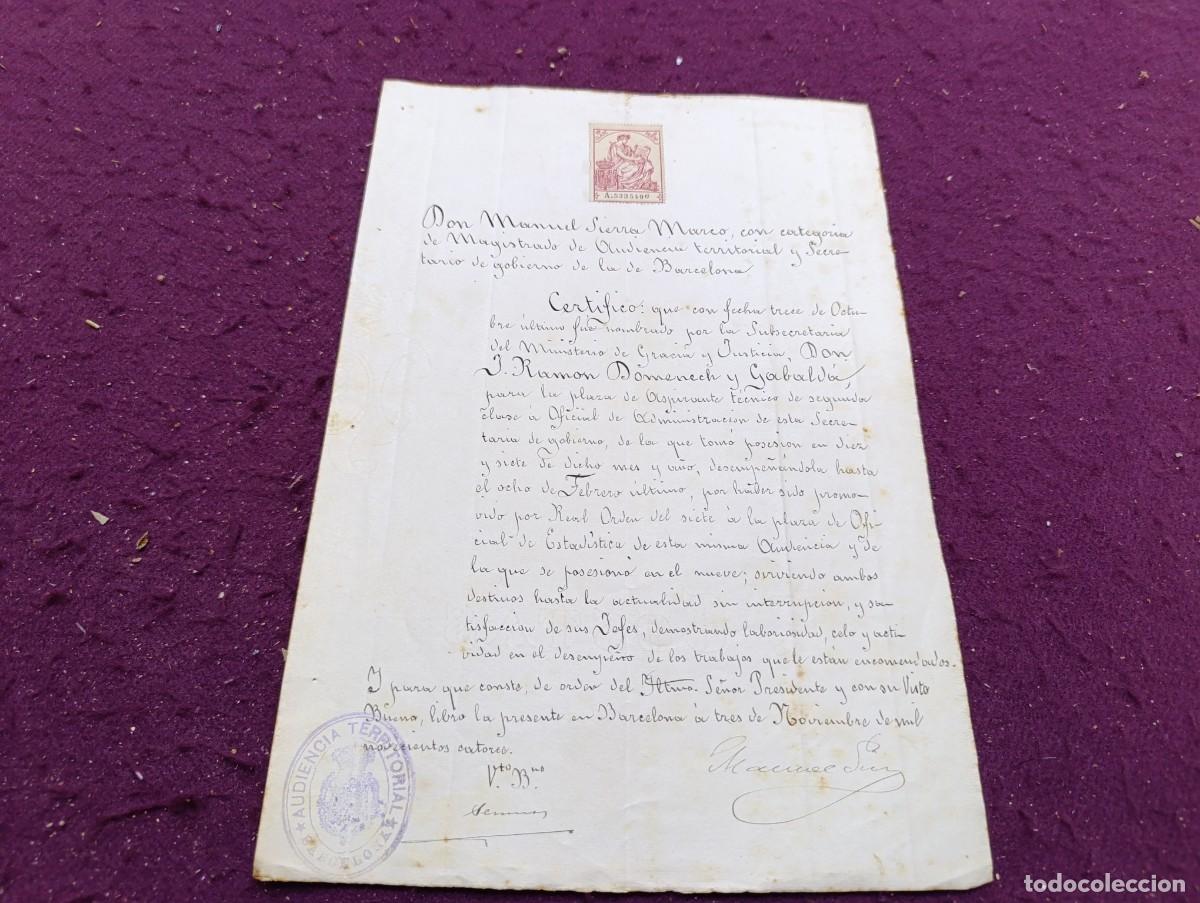 A.5335400
Don Manuel Sierra Marco, con categoria
de Magistrado de Audiencia territorial y Secre-
tario de gobierno de la de Barcelona
Certifico: que con fecha trece de Octu-
bre último fué nombrado por la Subsecretaria
del Ministerio de Gracia y Justicia, Don
J. Ramon Doménech y Gabaldá,
para la plaza de Aspirante técnico de segunda
clase á Oficial de Administracion de esta Secre-
taria de gobierno, de la que tomó posesion en diez
y siete de dicho mes y año, desempeñándola hasta
el ocho de Febrero último, por haber sido promo-
vido por Real Orden del siete á la plaza de Ofi-
cial de Estadistica de esta misma Audiencia y de
la que se posesionó en el nueve; sirviendo ambos
destinos hasta la actualidad sin interrupcion, y sa-
tisfaccion de sus Jefes, demostrando laboriosidad, celo y acti-
vidad en el desempeño de los trabajos que le están encomendados.
Y para que conste, de orden del Iltmo. Señor Presidente y con su Visto
Bueno, libro la presente en Barcelona á tres de Noviembre de mil
novecientos catorce.
V.to B.no
Manuel
AUDIENCIA TERRITORIAL
BARCELONA
todocoleccion